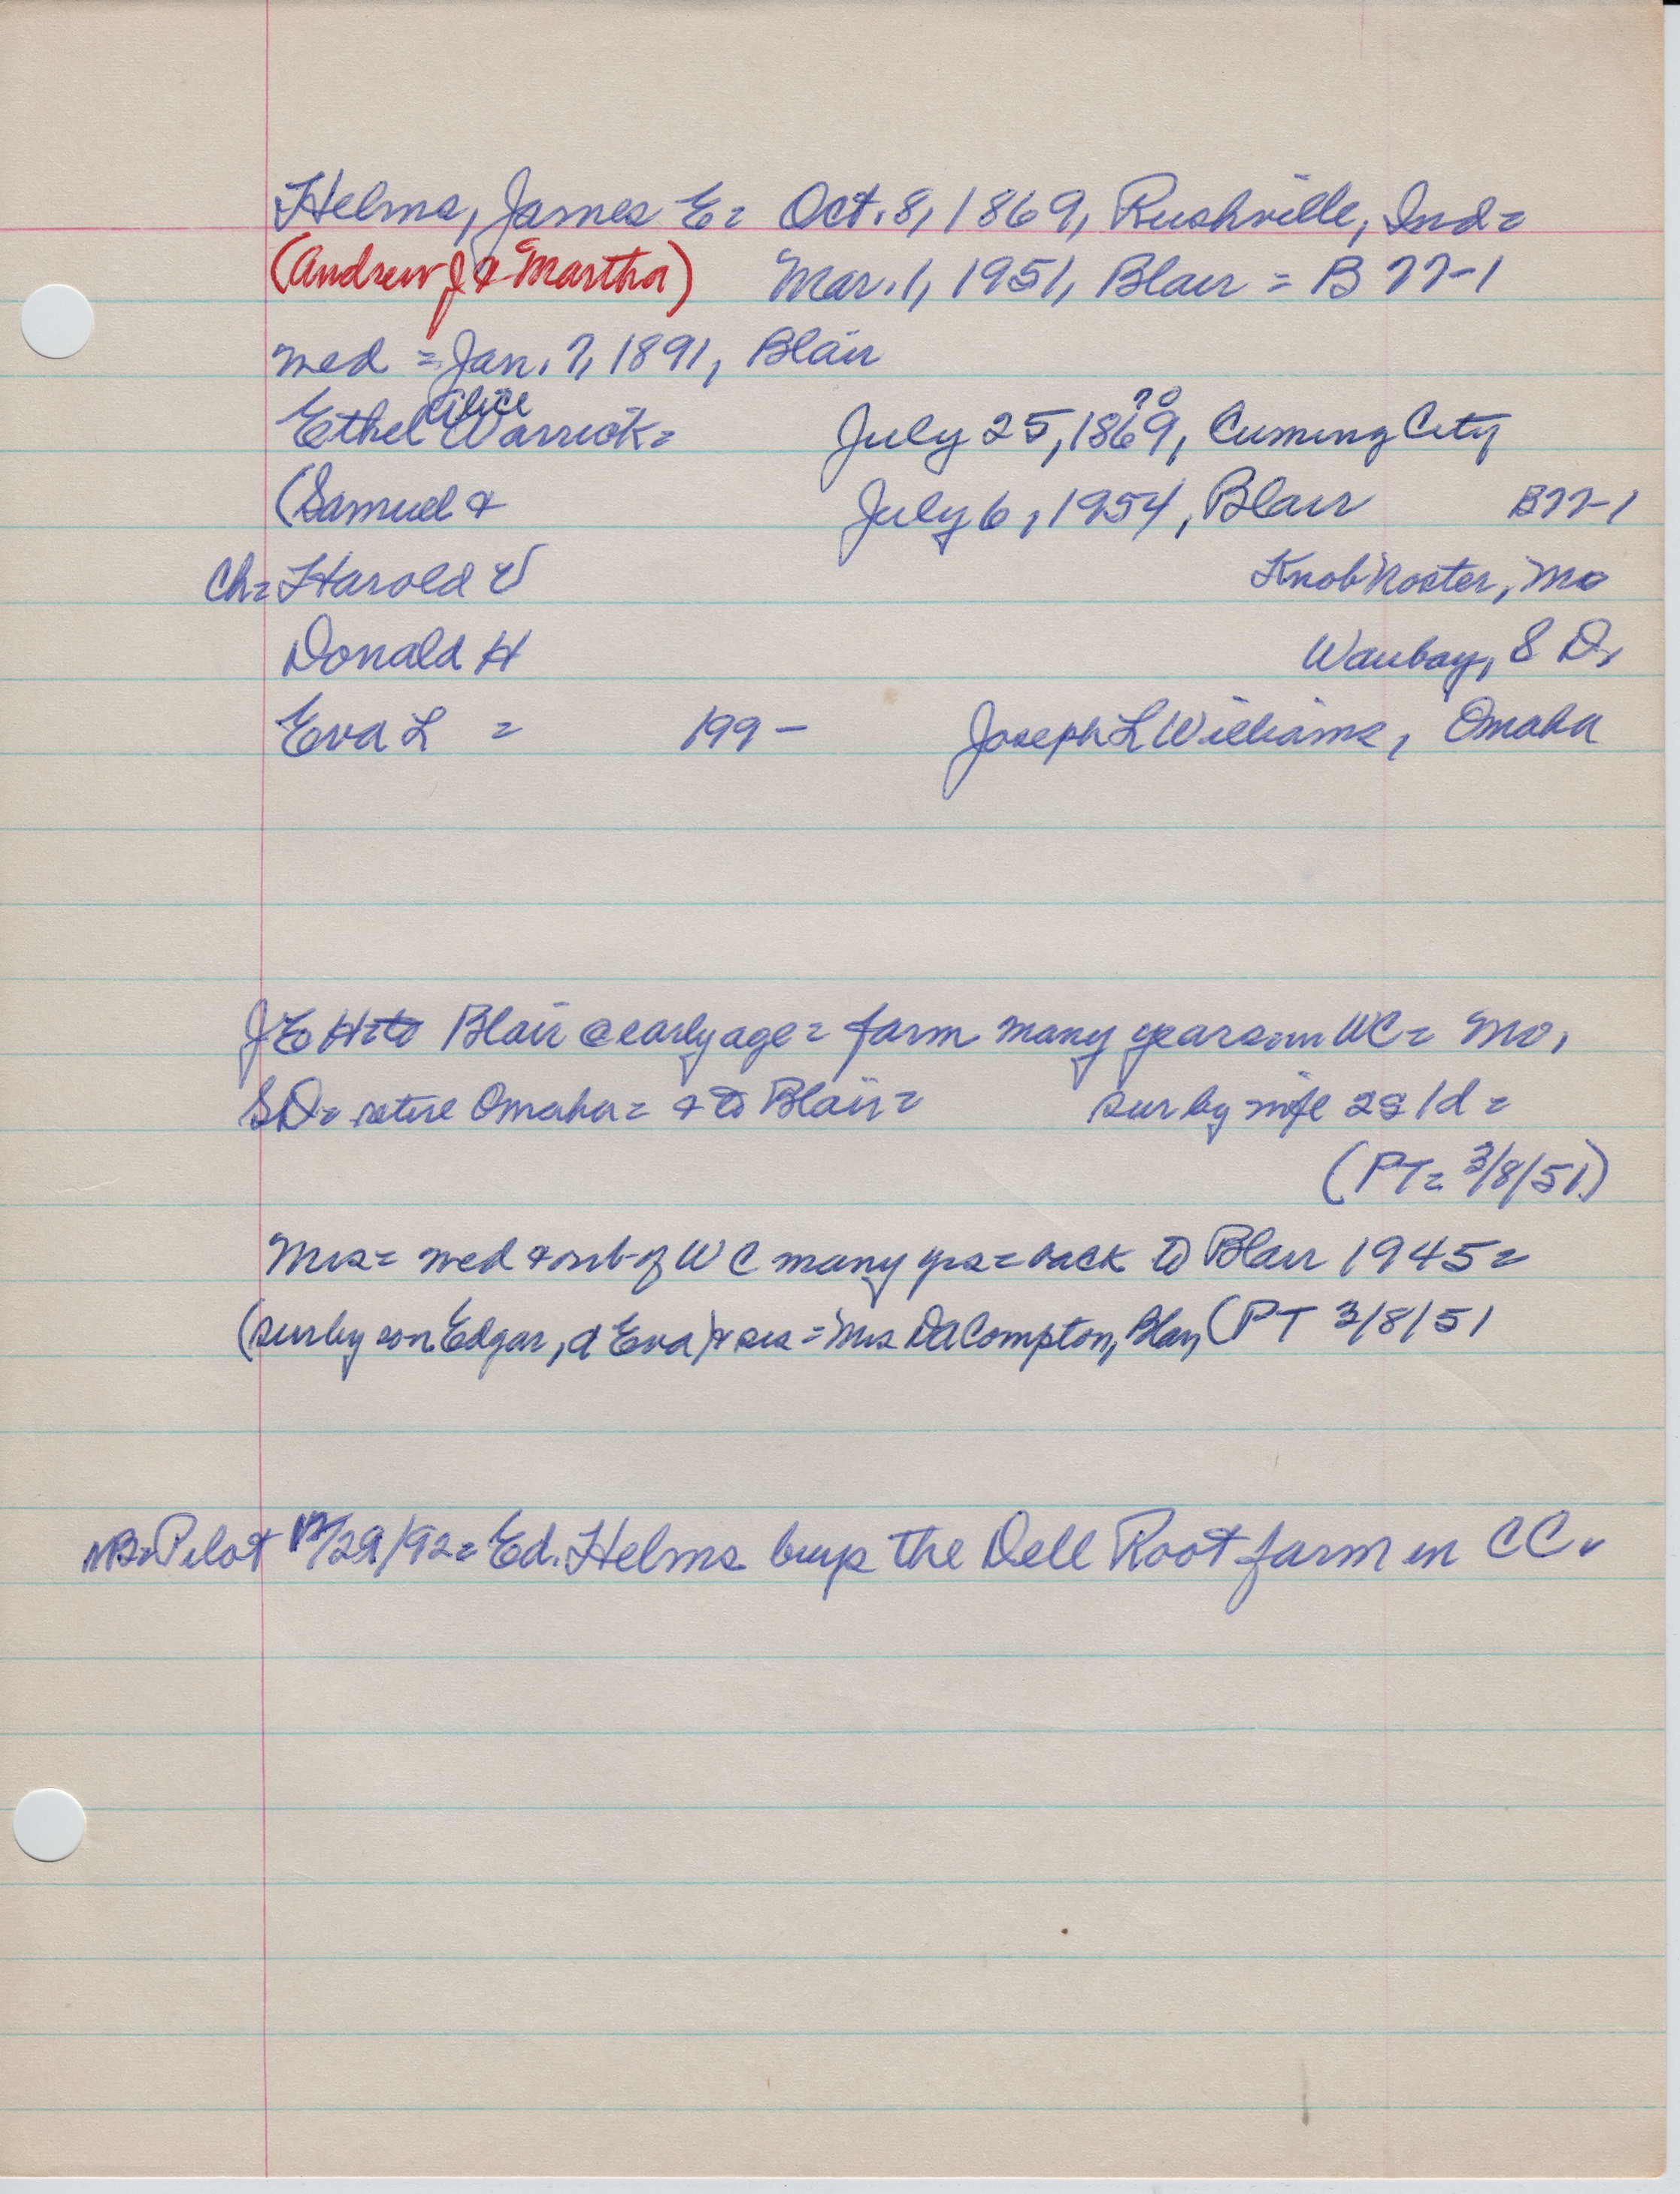 Helms, James E = Oct. 8, 1869, Rushville, Ind =
(Andrew J & Martha) Mar. 1, 1951, Blair = B 77-1
wed = Jan. 7, 1891, Blair
Alice 70
Ethel Warrick = July 25, 1869, Cuming City
(Samuel & July 6, 1954, Blair B77-1
Ch = Harold Knob Noster, Mo
Donald H Waubay, S D,
Eva L = 199- Joseph L Williams, Omaha
JE H = to Blair @ early age = farm many years in WC = Mo,
SD = retire Omaha = & to Blair = sur by wife 2s 1d =
(PT = 3/8/51)
Mrs = wed & of WC many yrs = back to Blair 1945 =
(sur by son Edgar, d Eva) & sis = Mrs DA Compton, Blair, (PT 3/8/51
Pilot 12/29/92 = Ed. Helms buys the Dell Root farm in CC.